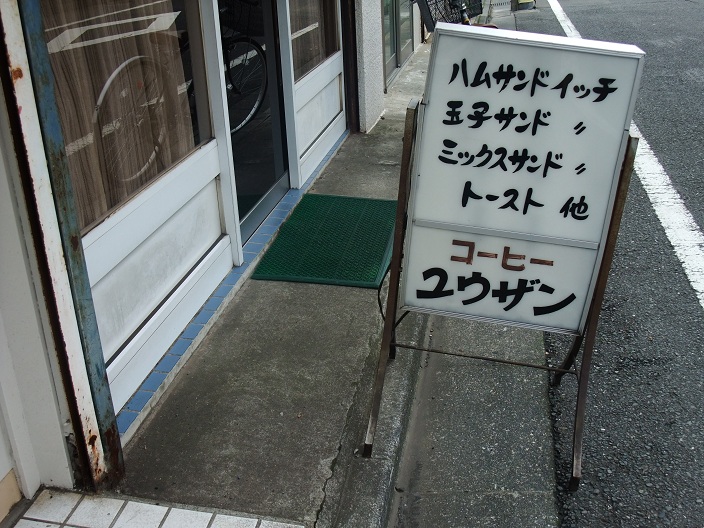 ハムサンドイッチ
玉子サンド 〃
ミックスサンド 〃
トースト 他
コーヒー
ユウザン